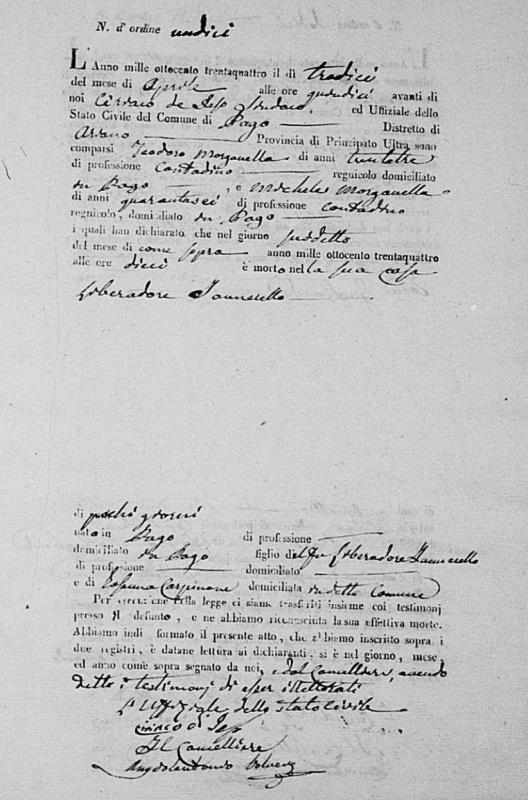 N. d'ordine undici
L'Anno mille ottocento trentaquattro il dì tredici
del mese di Aprile alle ore quindici avanti di
noi Ciriaco de Ieso Sindaco ed Uffiziale dello
Stato Civile del Comune di Pago Distretto di
Ariano Provincia di Principato Ultra sono
comparsi Teodoro Morganella di anni trentatre
di professione contadino regnicolo domiciliato
in Pago, e Michele Morganella
di anni quarantasei di professione contadino
regnicolo, domiciliato in Pago
i quali han dichiarato che nel giorno suddetto
del mese di come sopra anno mille ottocento trentaquattro
alle ore dieci è morto nella sua casa
Liberadore Iannarello
di pochi giorni
nato in Pago di professione
domiciliato in Pago figlio del fu Liberadore Iannarello
di professione domiciliato
e di Carpinone domiciliata in detto Comune
Per esecuzione della legge ci siamo trasferiti insieme coi testimonj
presso il defunto, e ne abbiamo riconosciuta la sua effettiva morte.
Abbiamo indi formato il presente atto, che abbiamo inscritto sopra i
due registri, e datane lettura ai dichiaranti, si è nel giorno, mese,
ed anno come sopra segnato da noi, e dal Cancelliere, avendo
detto i testimonj di esser illetterati
L'Uffiziale dello stato civile
Ciriaco d Ieso
Il Cancelliere